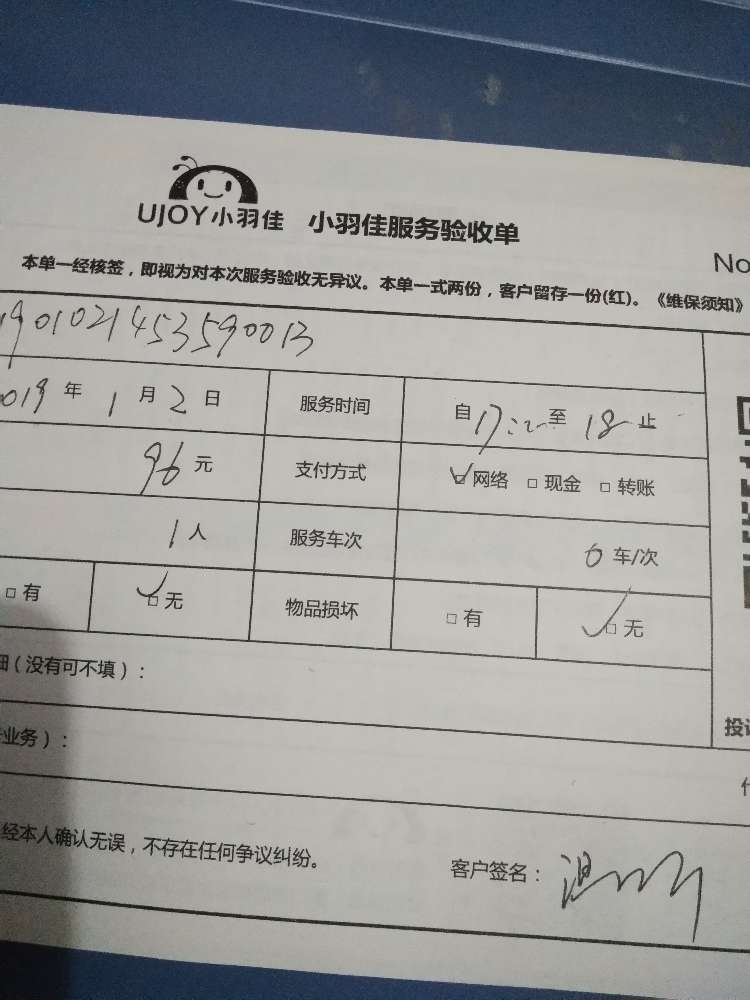 UJOY小羽佳 小羽佳服务验收单
No
本单一经核签，即视为对本次服务验收无异议。本单一式两份，客户留存一份(红)。《维保须知》
1901021453590013
2019 年 1 月 2 日 服务时间 自 17: 至 18 止
96 元 支付方式 ☑网络 □现金 □转账
1 人 服务车次 0 车/次
□有 ☑无 物品损坏 □有 ☑无
(没有可不填)：
业务)：
投
经本人确认无误，不存在任何争议纠纷。
客户签名：